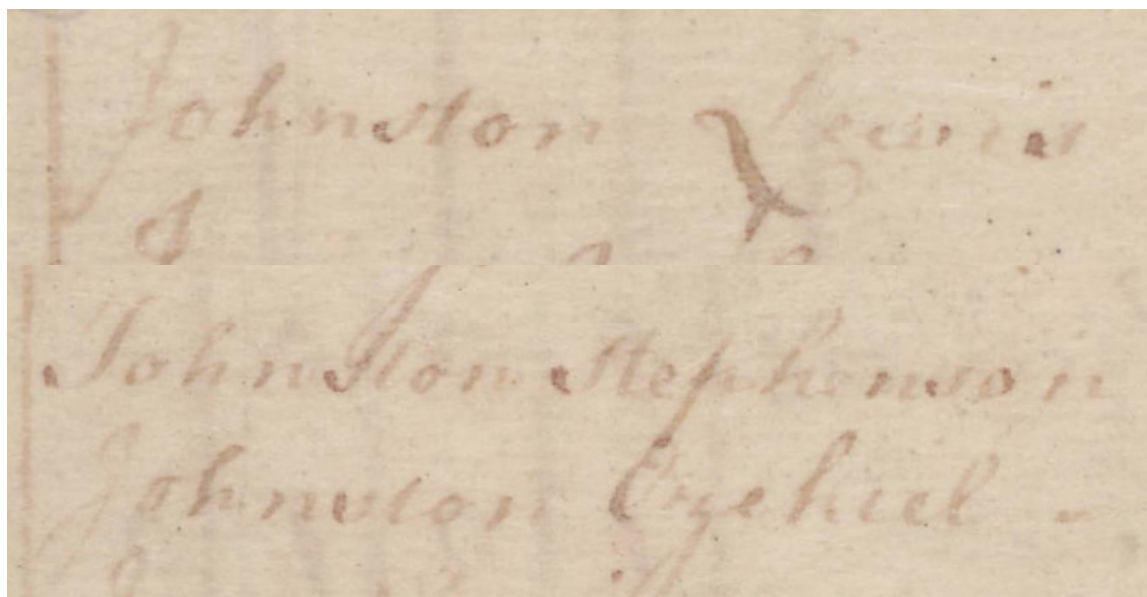 Johnston Lewis
Johnston Stephenson
Johnston Ezekiel